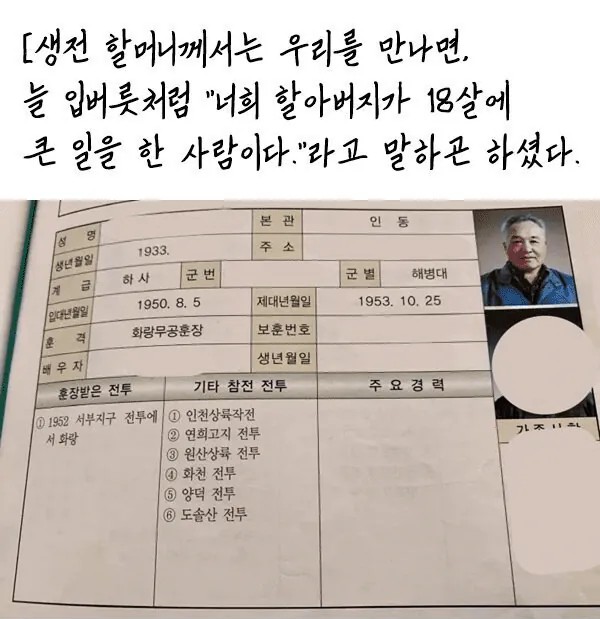 [생전 할머니께서는 우리를 만나면,
늘 입버릇처럼 "너희 할아버지가 18살에
큰 일을 한 사람이다."라고 말하곤 하셨다.
성 명 본 관 인 동
생년월일 1933. 주 소
계 급 하 사 군 번 군 별 해병대
입대년월일 1950. 8. 5 제대년월일 1953. 10. 25
훈 격 화랑무공훈장 보훈번호
배 우 자 생년월일
훈장받은 전투 기타 참전 전투 주 요 경 력
① 1952 서부지구 전투에
서 화랑
① 인천상륙작전
② 연희고지 전투
③ 원산상륙 전투
④ 화천 전투
⑤ 양덕 전투
⑥ 도솔산 전투